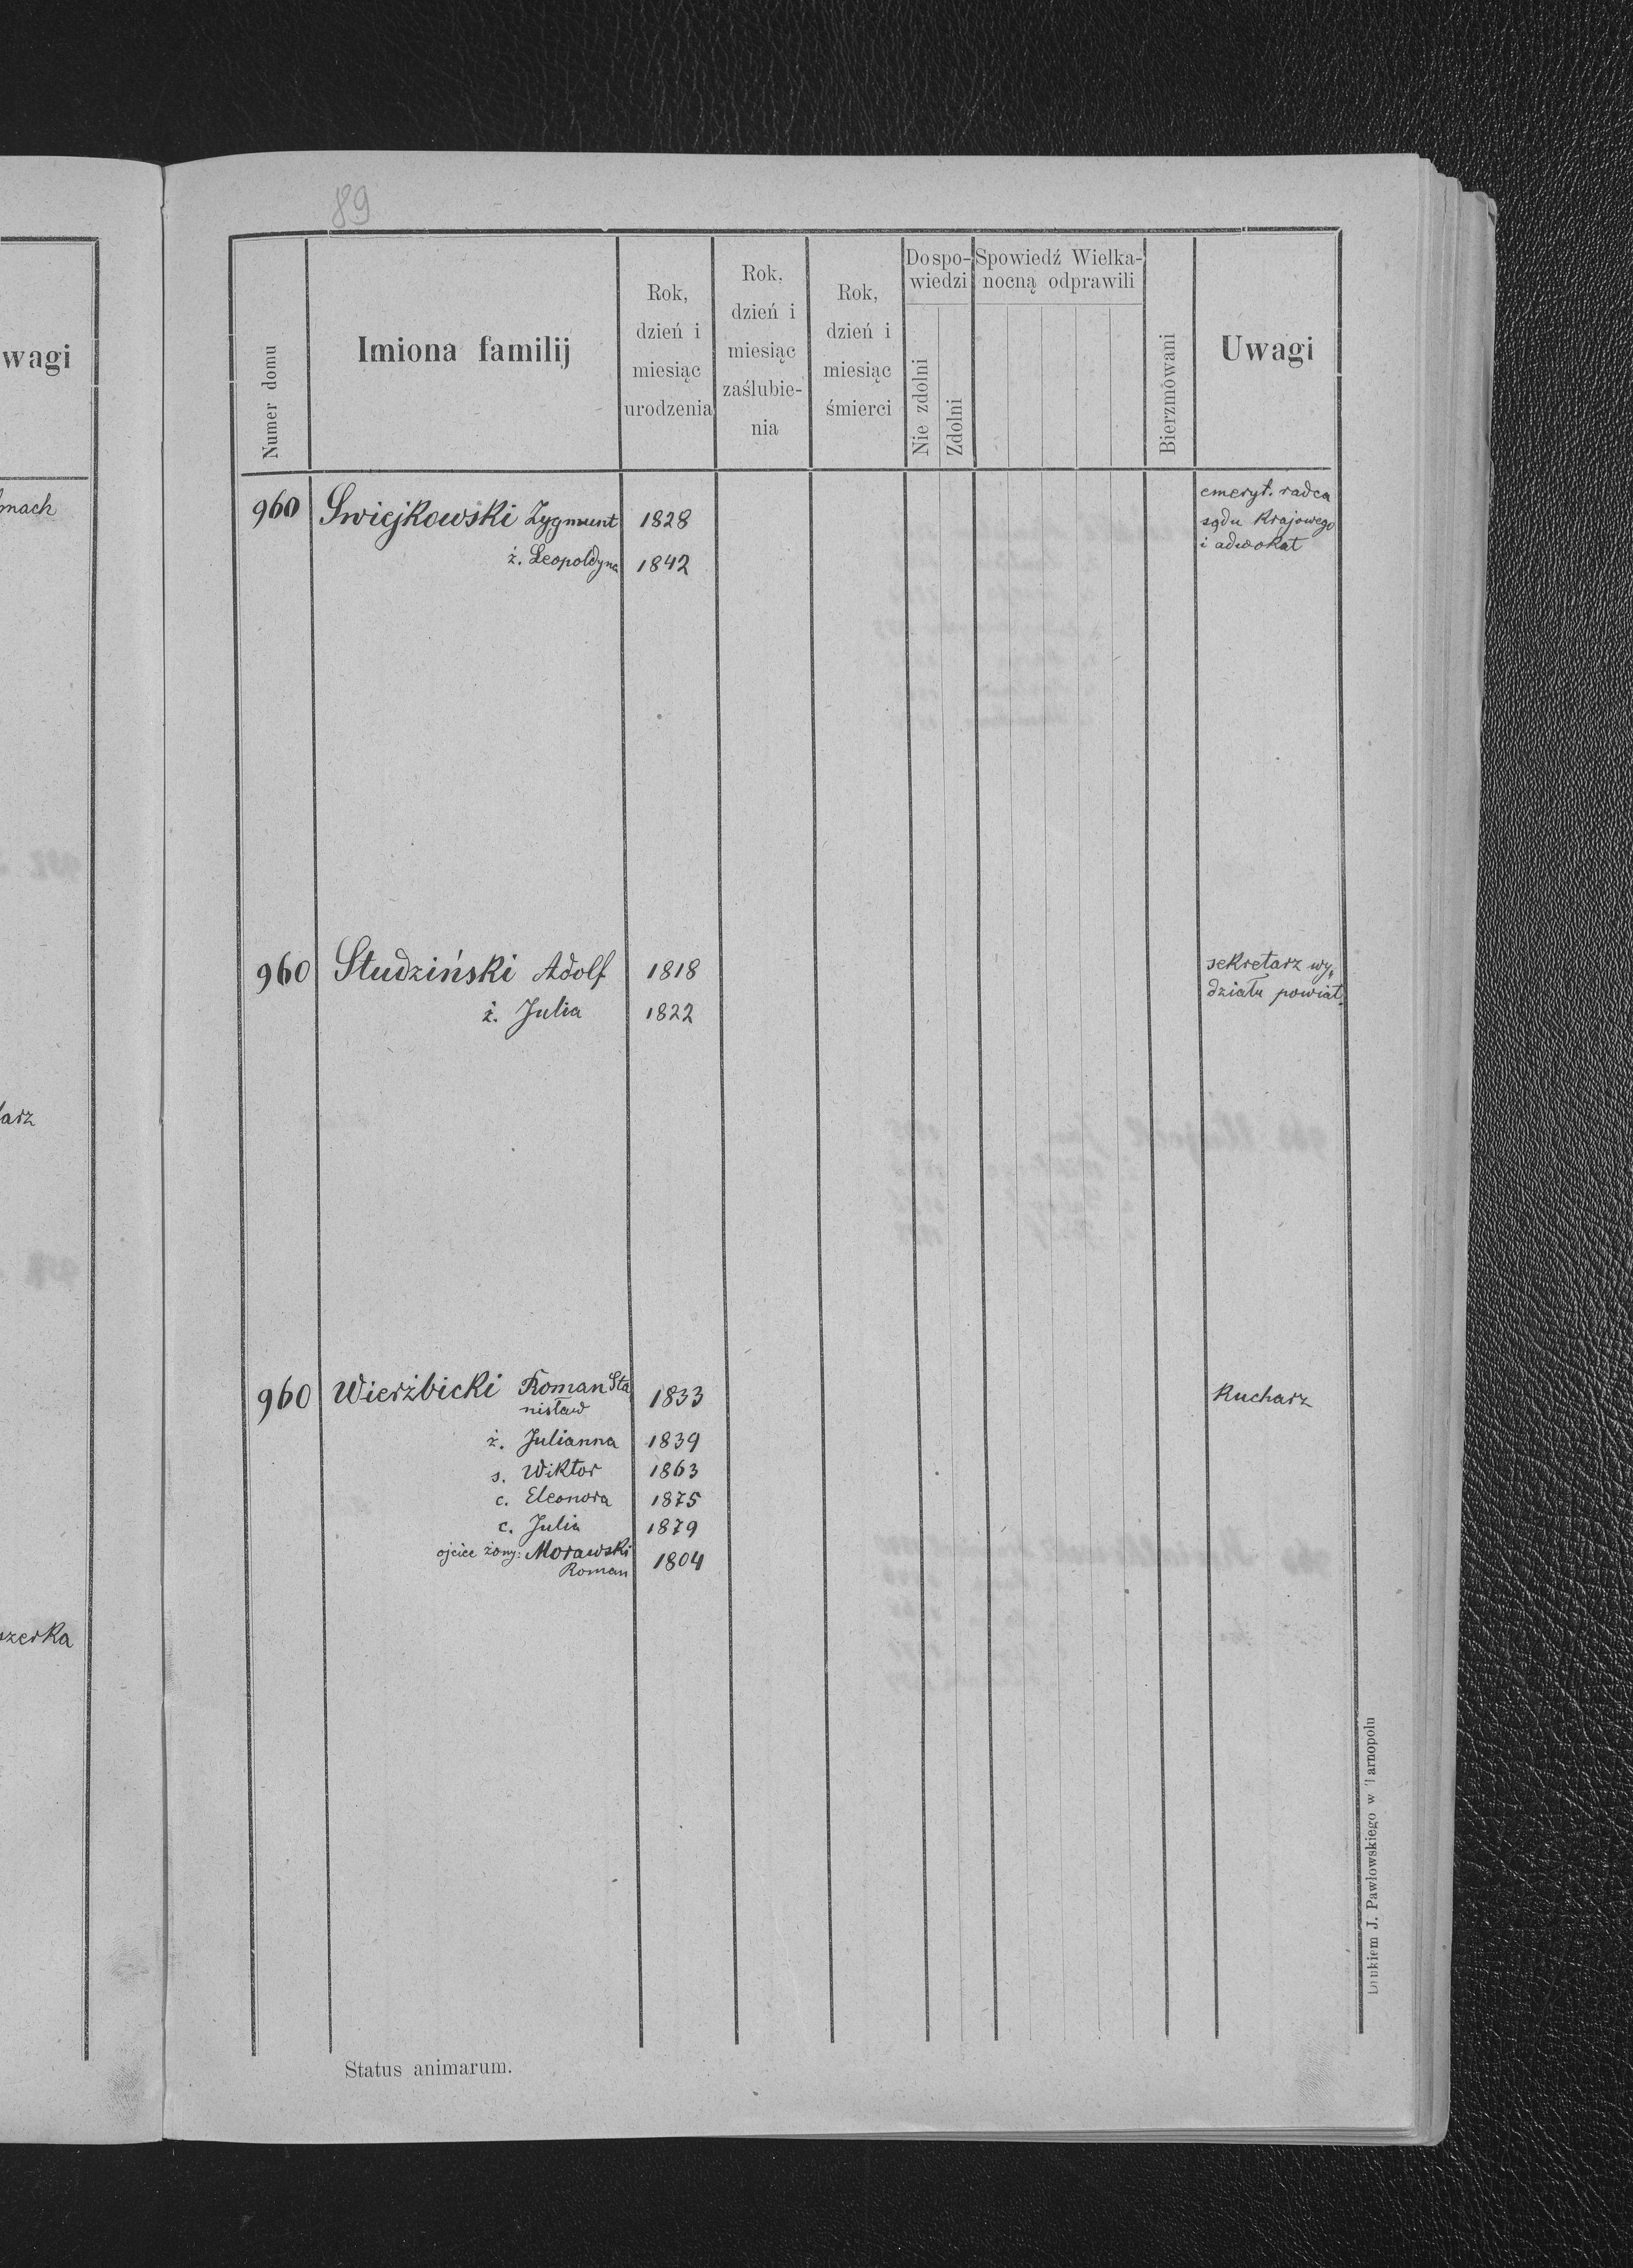 89
wagi
Numer domu
Imiona familij
Rok,
dzień i
miesiąc
urodzenia
Rok,
dzień i
miesiąc
zaślubie-
nia
Rok,
dzień i
miesiąc
śmierci
Do spo-
wiedzi
Nie zdolni
Zdolni
Spowiedź Wielka-
nocną odprawili
Bierzmowani
Uwagi
960 Swiejkowski Zygmunt 1828 emeryt. radca
sądu Krajowego
i adwokat
ż. Leopoldyna 1842
960 Studziński Adolf 1818 sekretarz wy„
działu powiat.
ż. Julia 1822
arz
960 Wierzbicki Roman Sta 1833 Kucharz
nisław
ż. Julianna 1839
s. Wiktor 1863
c. Eleonora 1875
c. Julia 1879
ojciec żony: Morawski 1804
Roman
szerka
Status animarum.
Drukiem J. Pawłowskiego w Tarnopolu